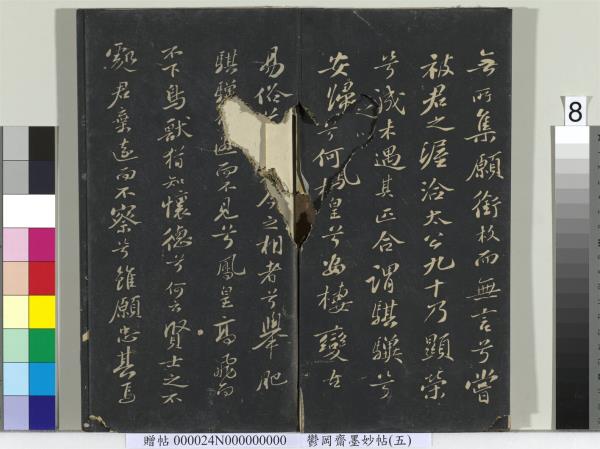 无所集願銜枚而無言兮嘗
被君之渥洽太公九十乃顯榮
兮誠未遇其匹合謂騏驥兮
安歸鳳皇兮安棲變古
易俗今之相者兮舉肥
騏驥而不見兮鳳皇高飛而
不下鳥獸猶知懷德兮何云賢士之不
處君棄遠而不察兮雖願忠其焉
8
贈帖 000024N000000000 鬱岡齋墨妙帖(五)